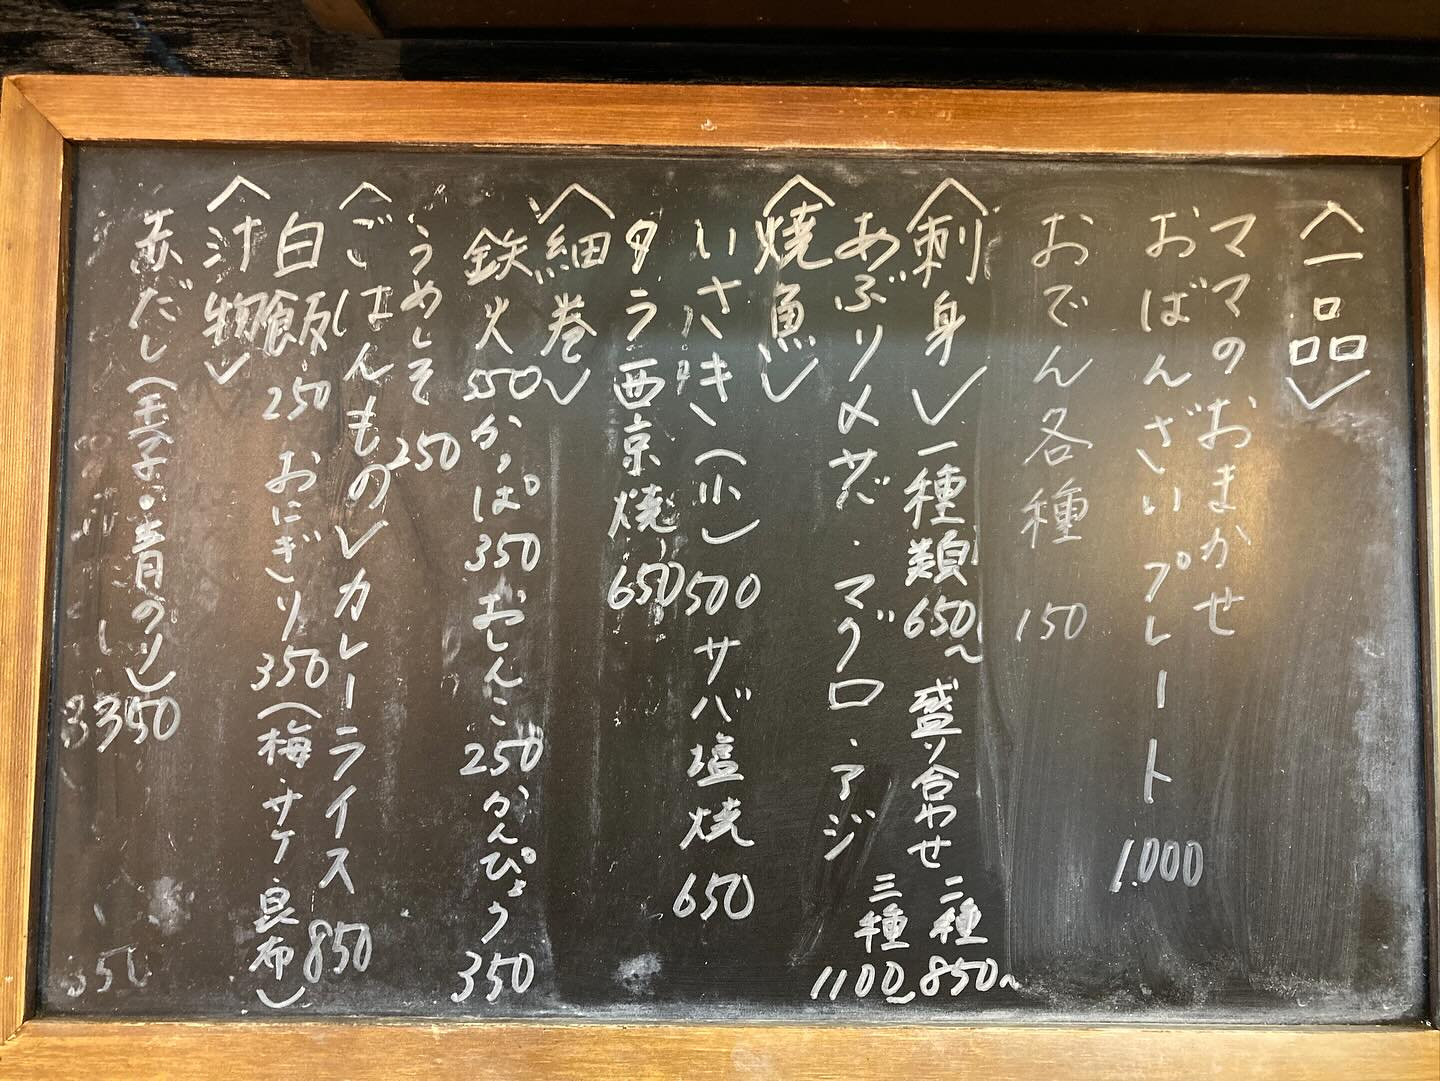 〈一品〉
ママのおまかせ
おばんざいプレート 1.000
おでん各種 150
〈刺身〉一種類650〜 盛り合わせ 二種850〜
あぶり〆サバ・マグロ・アジ 三種1100〜
〈焼魚〉
いさき(小)500 サバ塩焼 650
タラ西京焼 650
〈細巻〉
鉄火 550 かっぱ 350 おしんこ 250 かんぴょう 350
うめしそ 250
〈ごはんもの〉カレーライス 850
白飯 250 おにぎり 350(梅・サケ・昆布)
〈汁物〉
赤だし(玉子・青のり) 350
350